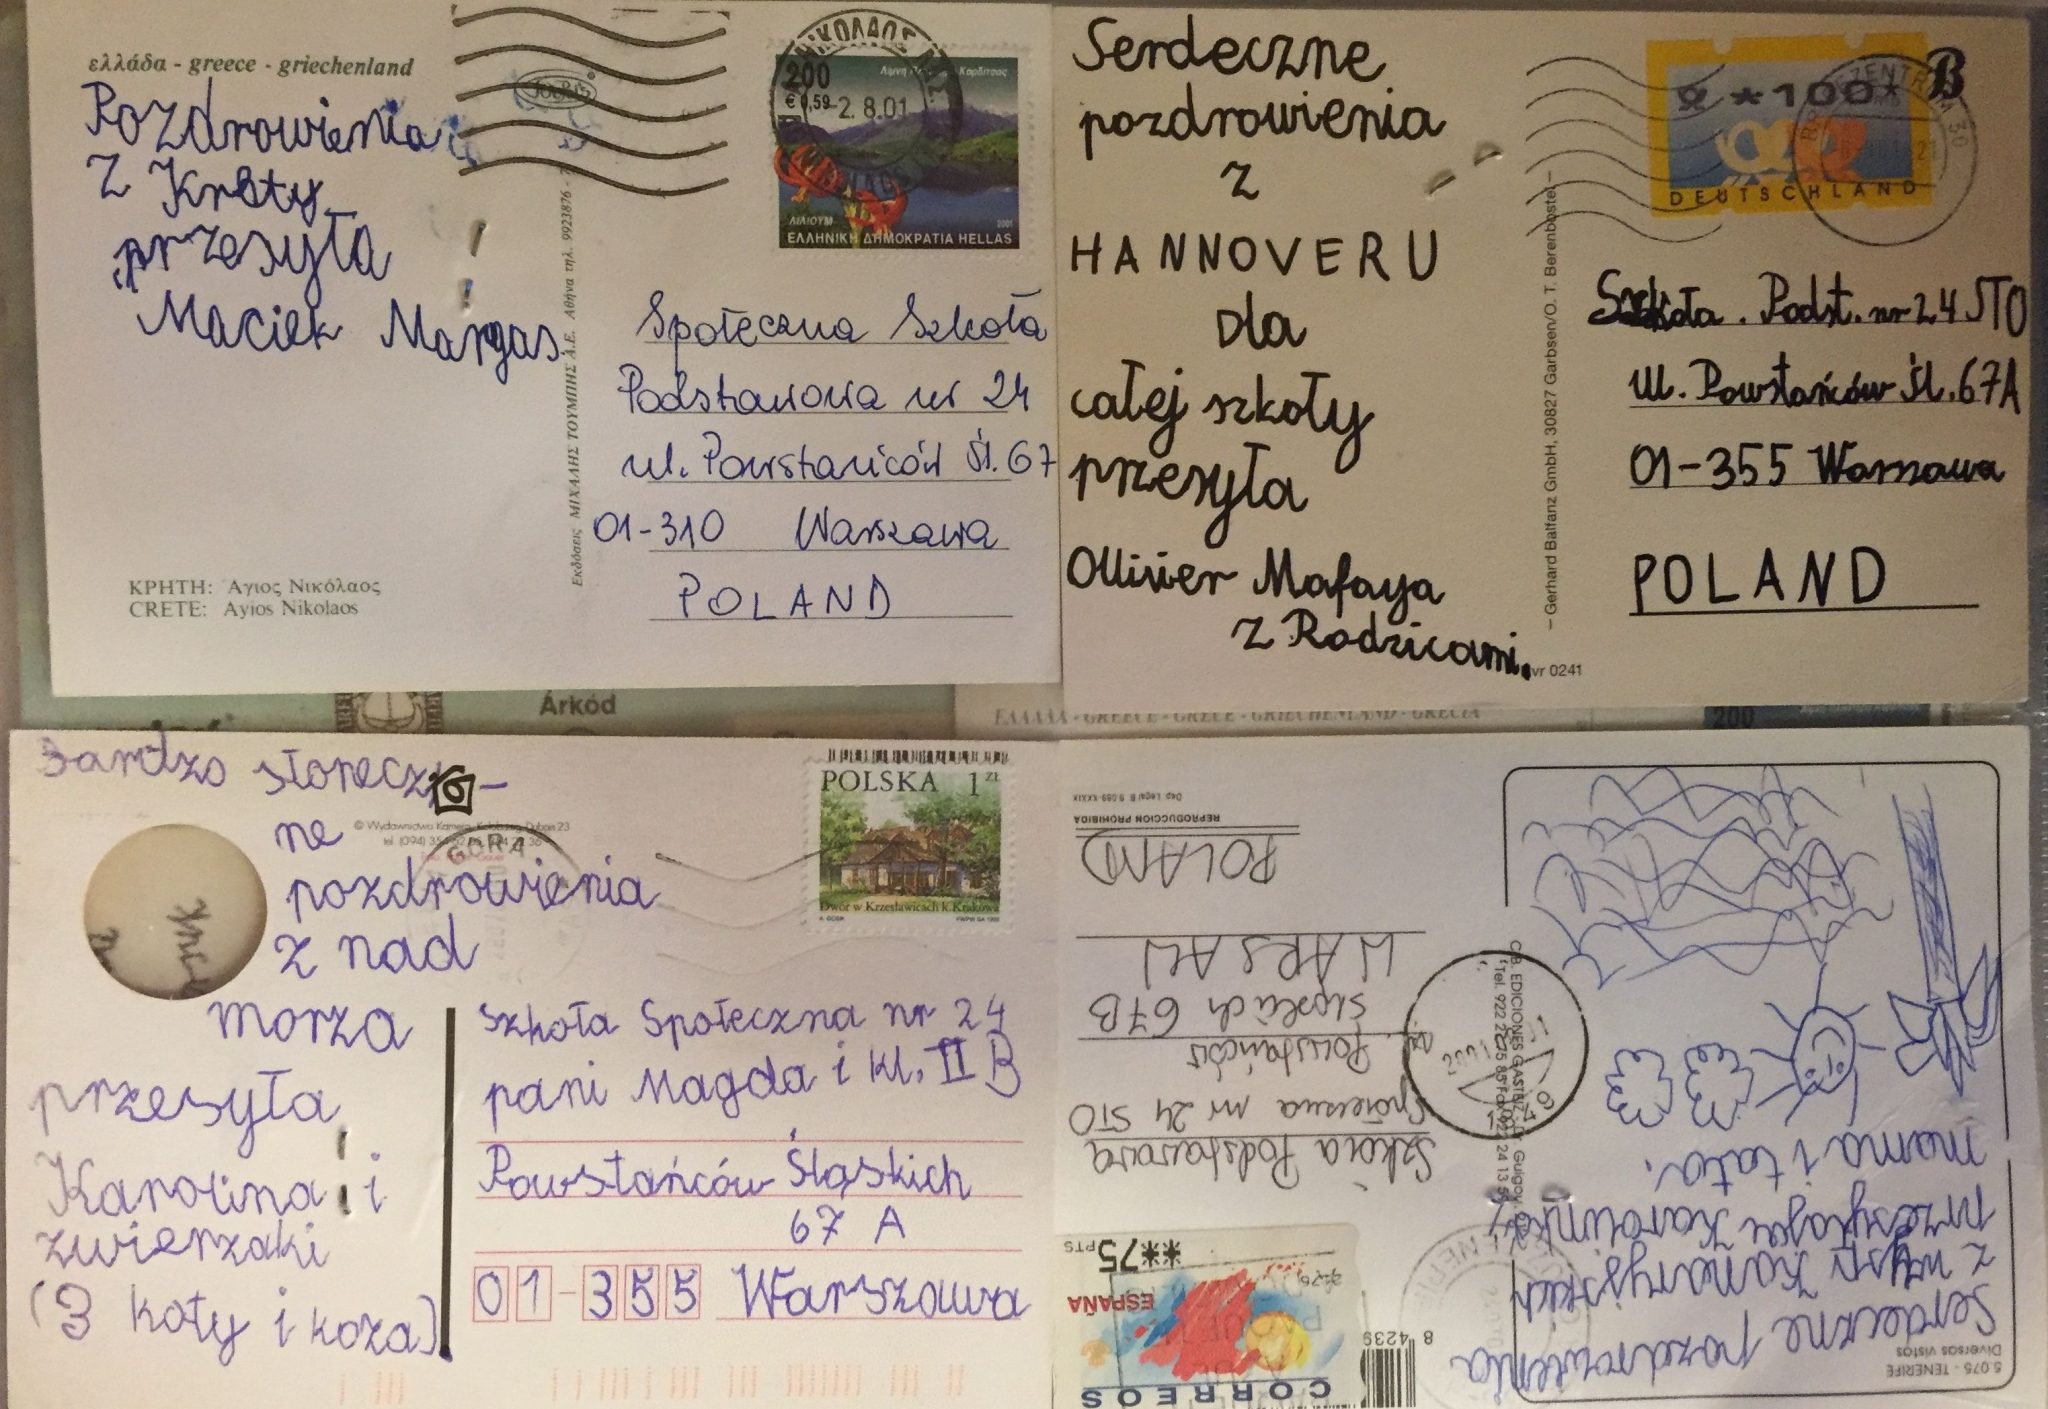 ελλάδα - greece - griechenland
Pozdrowienia
z Krety
przesyła
Maciek Margas.
ΚΡΗΤΗ: Άγιος Νικόλαος
CRETE: Ayios Nikolaos
Εκδόσεις ΜΙΧΑΛΗΣ ΤΟΥΜΠΗΣ Α.Ε. Αθήνα τηλ. 9923876 -
200
€ 0,59
2.8.01
ΛΙΛΙΟΥΜ
2001
ΕΛΛΗΝΙΚΗ ΔΗΜΟΚΡΑΤΙΑ HELLAS
Społeczna Szkoła
Podstawowa nr 24
ul. Powstańców Śl. 67
01-310 Warszawa
POLAND
Serdeczne
pozdrowienia
z
HANNOVERU
dla
całej szkoły
przesyła
Ollivier Mafaya
z Rodzicami.
– Gerhard Balfanz GmbH, 30827 Garbsen/O. T. Berenbostel –
vr 0241
*100*
B
DEUTSCHLAND
Szkoła . Podst. nr 24 STO
ul. Powstańców Śl. 67A
01-355 Warszawa
POLAND
Árkód
ΕΛΛΑΔΑ - GREECE - GRECE - GRIECHENLAND - GRECIA
200
Bardzo słonecz-
ne
pozdrowienia
z nad
morza
przesyła
Karolina i
zwierzaki
(3 koty i koza)
© Wydawnictwo Kamera, Kołobrzeg, Dubois 23
GÓRA
POLSKA 1 zł
Dwór w Krzesławicach k. Krakowa
Szkoła Społeczna nr 24
pani Magda i kl. II B
Powstańców Śląskich
67 A
01-355 Warszawa
5.075 - TENERIFE
Diversas vistas
Serdeczne pozdrowienia
z wysp Kanaryjskich
przesyłają Karolinka,
mama i tata.
ESPAÑA
**75 PTS
CORREOS
8 4239
Szkoła Podstawowa
Społeczna nr 24 STO
ul. Powstańców
Śląskich 67B
WARSAW
POLAND
REPRODUCCION PROHIBIDA
Dep. Legal B. 9.089-XXXIX